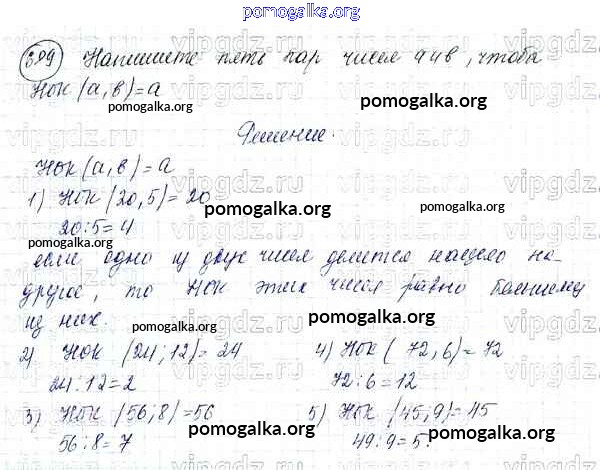 pomogalka.org
399 Напишите пять пар чисел a и b, чтобы
НОК (a, b) = a
pomogalka.org
Решение.
НОК (a, b) = a
1) НОК (20, 5) = 20
pomogalka.org
pomogalka.org
20:5=4
pomogalka.org
если одно из двух чисел делится нацело на
другое, то НОК этих чисел равно большему
из них.
pomogalka.org
pomogalka.org
2) НОК (24; 12) = 24 4) НОК ( 72, 6) = 72
24:12=2 72:6=12
pomogalka.org
3) НОК (56; 8) = 56 5) НОК (45; 9) = 45
pomogalka.org
pomogalka.org
56:8=7 49:9=5.